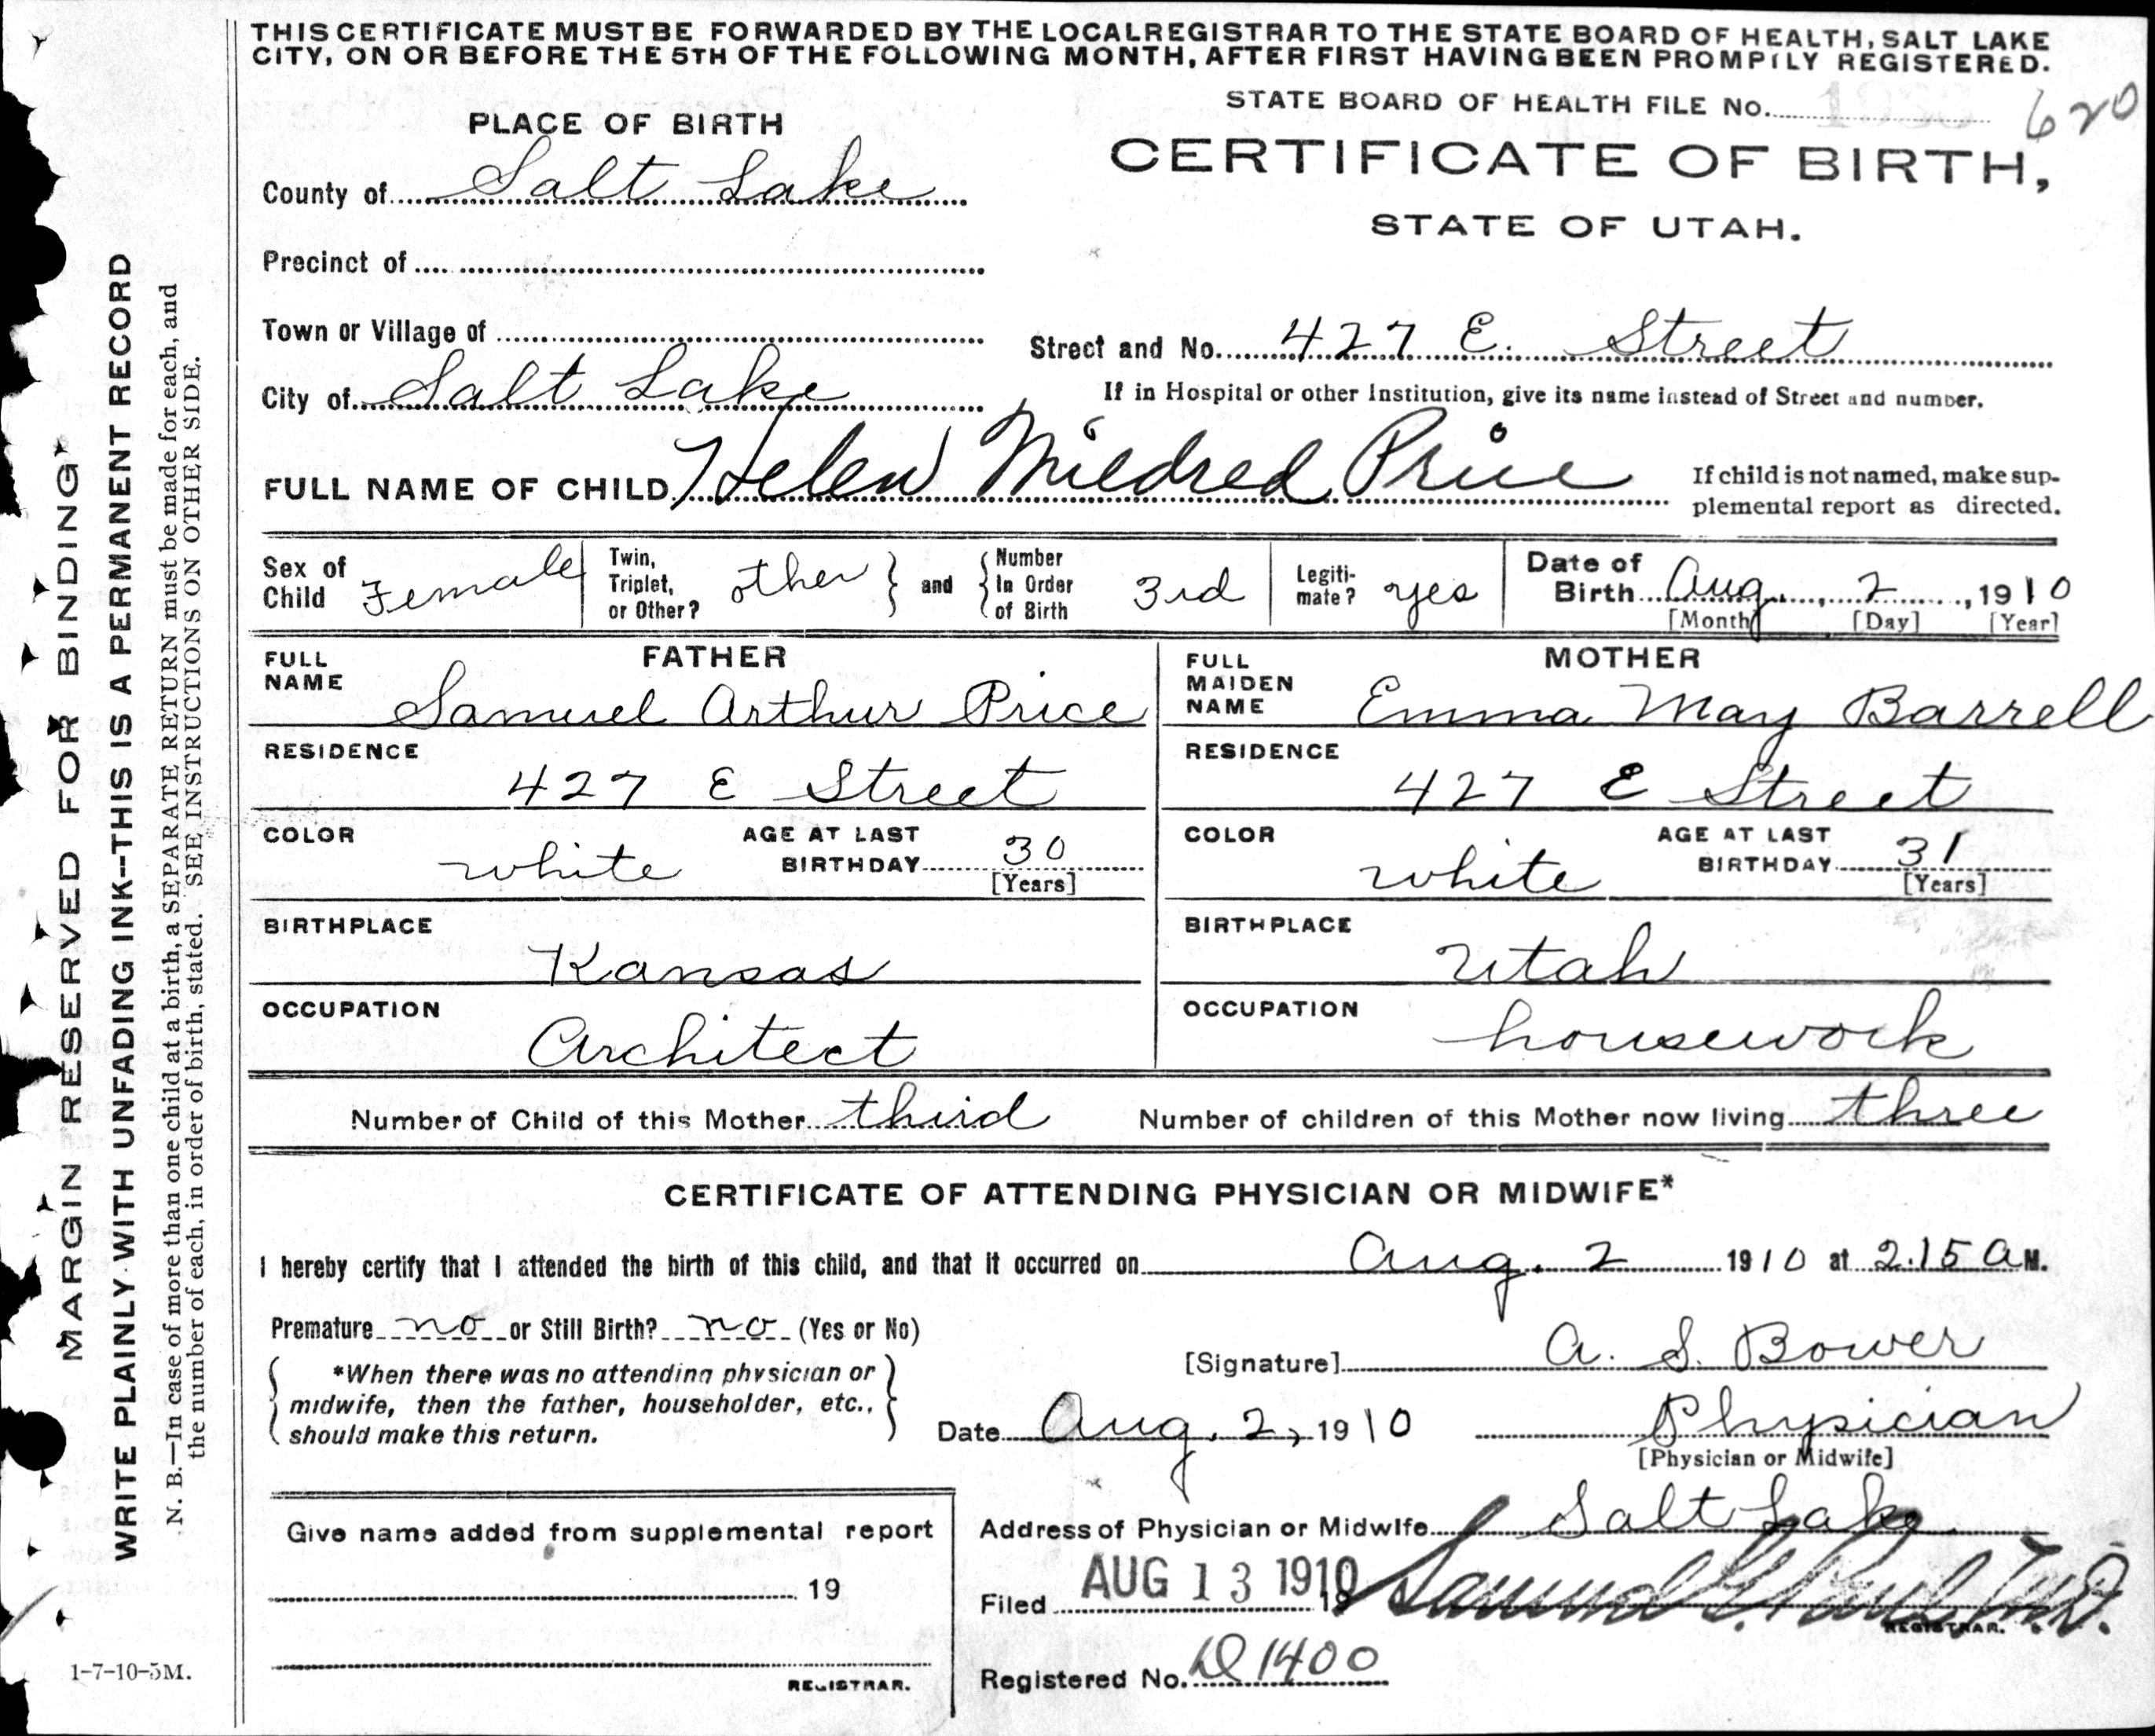 THIS CERTIFICATE MUST BE FORWARDED BY THE LOCAL REGISTRAR TO THE STATE BOARD OF HEALTH, SALT LAKE
CITY, ON OR BEFORE THE 5TH OF THE FOLLOWING MONTH, AFTER FIRST HAVING BEEN PROMPTLY REGISTERED.
STATE BOARD OF HEALTH FILE No. 620
PLACE OF BIRTH
CERTIFICATE OF BIRTH,
STATE OF UTAH.
County of Salt Lake
Precinct of
Town or Village of
Street and No. 427 E. Street
City of Salt Lake
If in Hospital or other Institution, give its name instead of Street and number.
FULL NAME OF CHILD Helen Mildred Price
If child is not named, make sup-
plemental report as directed.
Sex of Child Female
Twin, Triplet, or Other? other and Number In Order of Birth 3rd
Legiti-mate? yes
Date of Birth Aug., 2, 1910
[Month] [Day] [Year]
FATHER
FULL NAME Samuel Arthur Price
MOTHER
FULL MAIDEN NAME Emma May Barrell
RESIDENCE 427 E Street
RESIDENCE 427 E Street
COLOR white AGE AT LAST BIRTHDAY 30 [Years]
COLOR white AGE AT LAST BIRTHDAY 31 [Years]
BIRTHPLACE Kansas
BIRTHPLACE Utah
OCCUPATION Architect
OCCUPATION housework
Number of Child of this Mother third Number of children of this Mother now living three
CERTIFICATE OF ATTENDING PHYSICIAN OR MIDWIFE*
I hereby certify that I attended the birth of this child, and that it occurred on Aug. 2 1910 at 2.15 a M.
Premature no or Still Birth? no (Yes or No)
*When there was no attending physician or
midwife, then the father, householder, etc.,
should make this return.
[Signature] A. S. Bower
Date Aug. 2, 1910 Physician
[Physician or Midwife]
Give name added from supplemental report
19
REGISTRAR.
Address of Physician or Midwife Salt Lake
Filed AUG 13 1910 19 Samuel G. Paul M.D.
REGISTRAR.
Registered No. 1400
MARGIN RESERVED FOR BINDING
WRITE PLAINLY WITH UNFADING INK--THIS IS A PERMANENT RECORD
N. B.—In case of more than one child at a birth, a SEPARATE RETURN must be made for each, and
the number of each, in order of birth, stated. SEE INSTRUCTIONS ON OTHER SIDE.
1-7-10-5M.